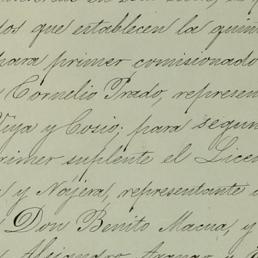 dos que establecen la quin
para primer comisionado
Cornelio Prado, represen
y Cosio; para segun
rimer suplente el Licen
y Nájera, representante
Don Benito Macua, y
Alejandro Arango y